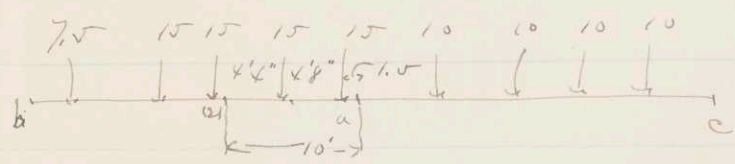 7.5 15 15 15 15 10 10 10 10
4'4" 4'8" 1.5
b a c
10'